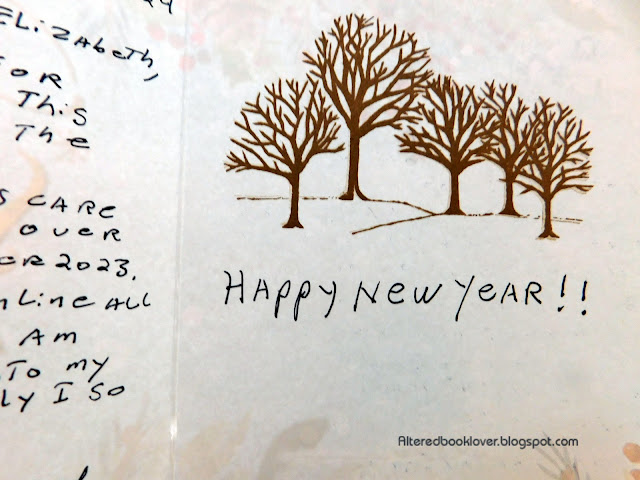 Elizabeth,
FOR
This
The
CARE
OVER
2023.
ALL
Am
To my
I so
HAppy New YEAR!!
Alteredbooklover.blogspot.com